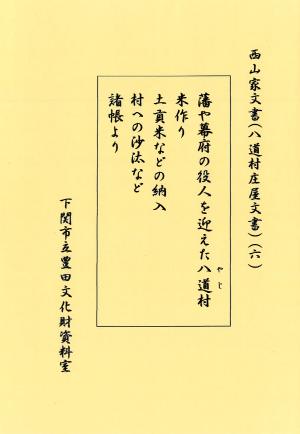 西山家文書(八道村庄屋文書)(六)
藩や幕府の役人を迎えた八道村
やじ
米作り
土貢米などの納入
村への沙汰など
諸帳より
下関市立豊田文化財資料室